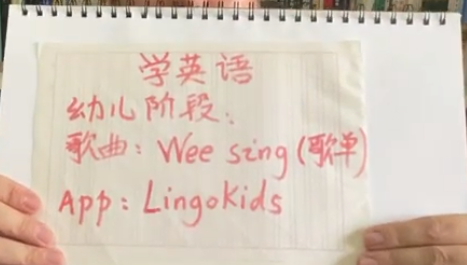 学英语
幼儿阶段:
歌曲: Wee sing (歌单)
App: LingoKids